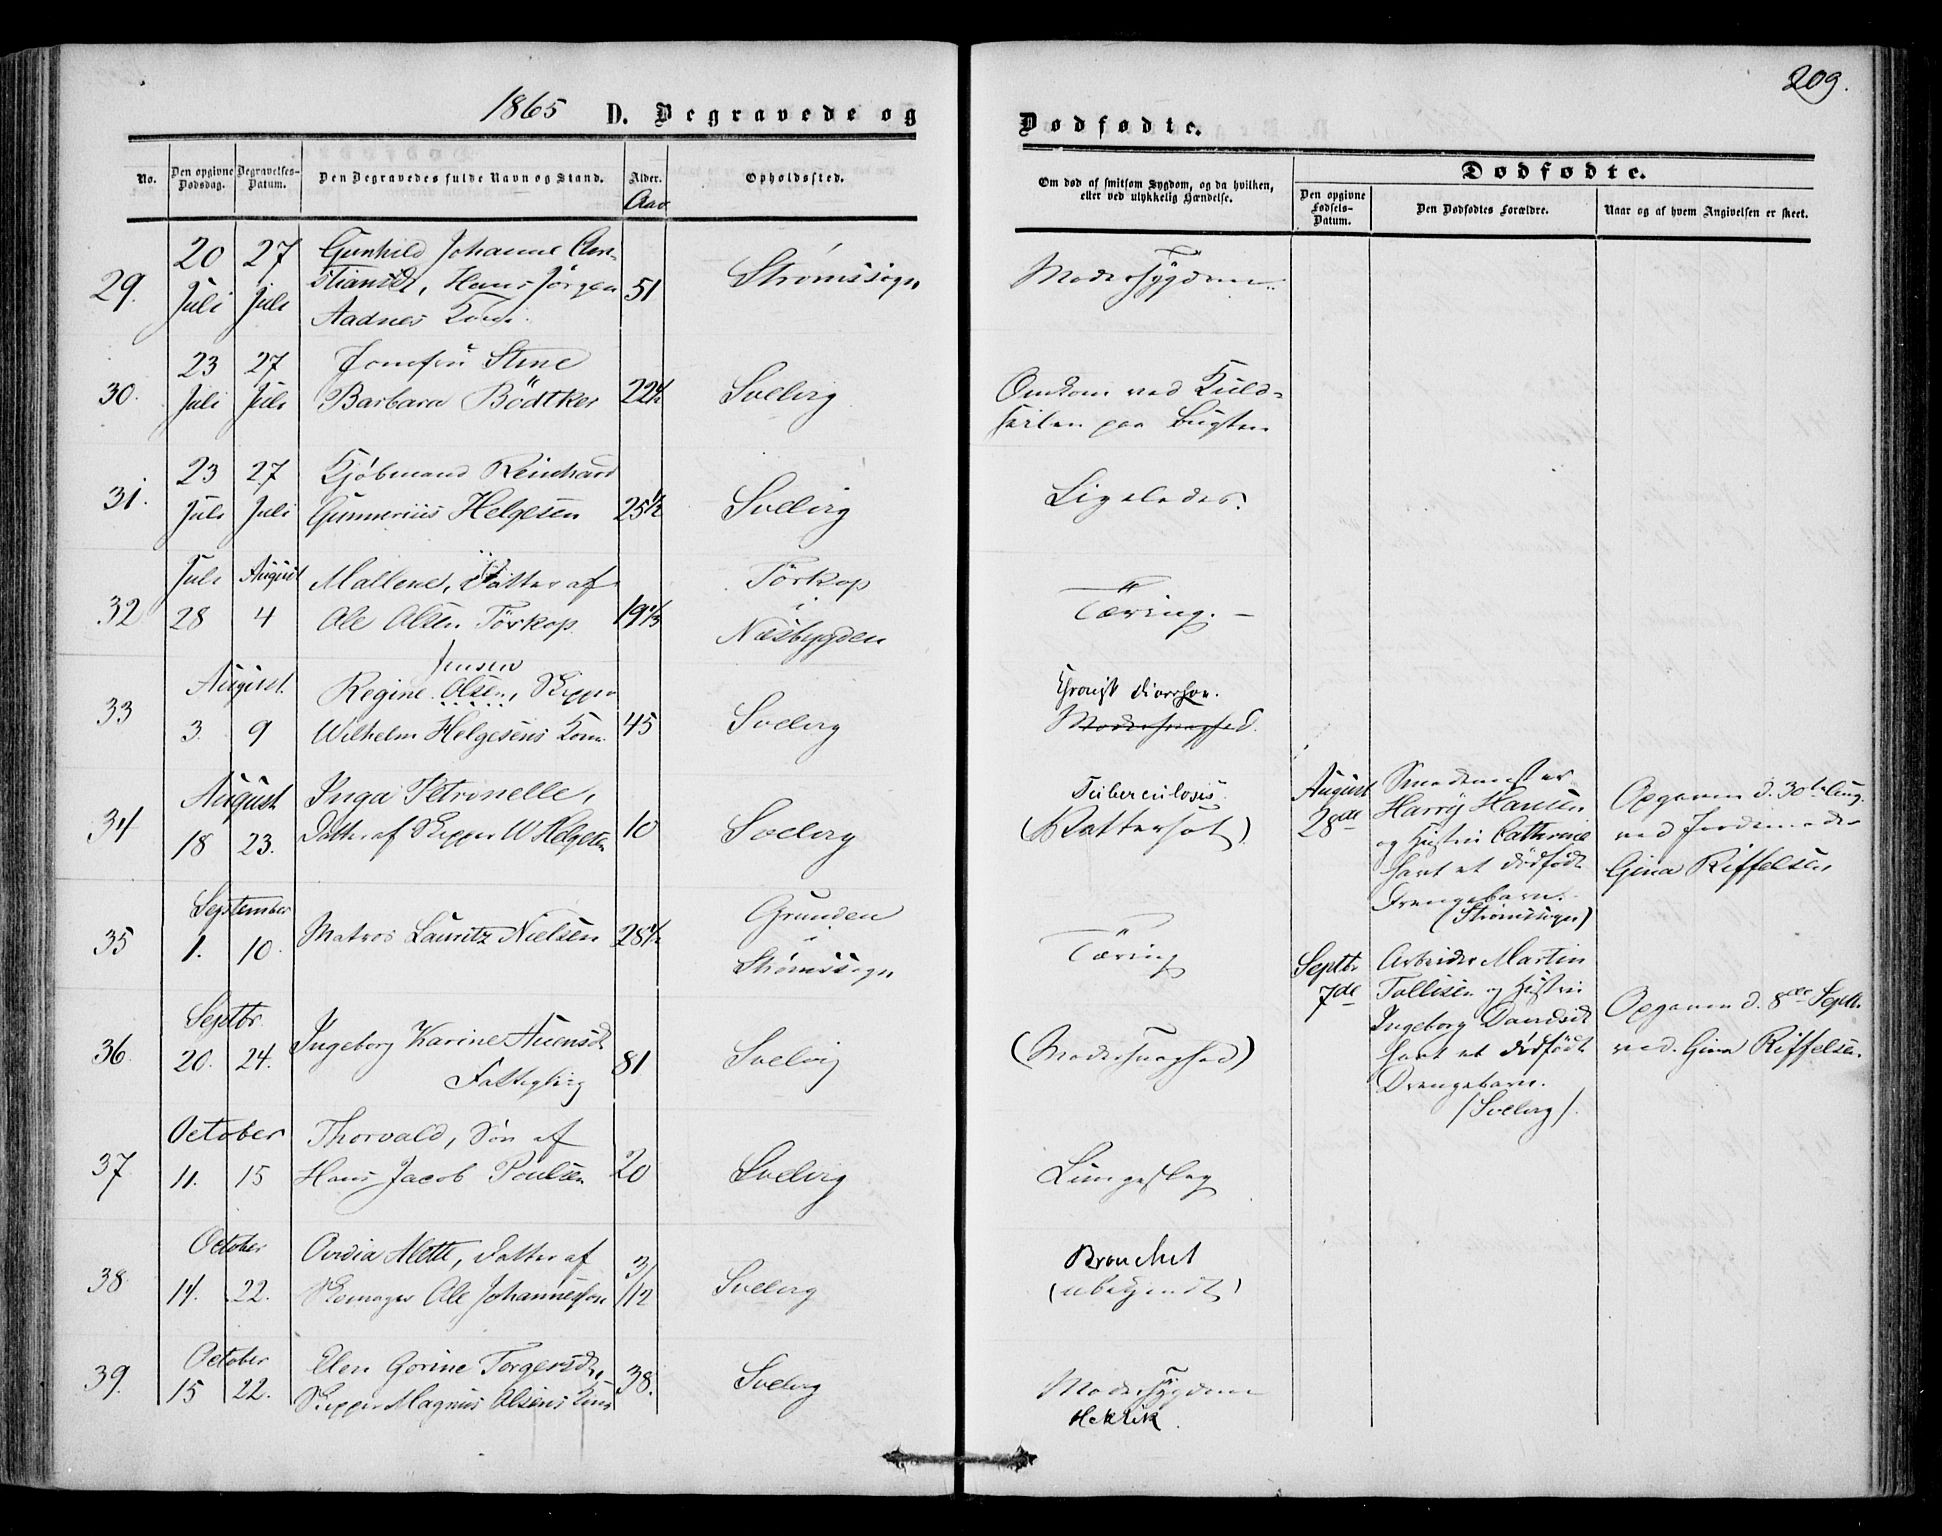 1865 D. Begravede og
Dødfødte.
209.
No.
Den opgivne Dødsdag.
Begravelses-Datum.
Den Begravedes fulde Navn og Stand.
Alder.
Aar
Opholdssted.
Om død af smitsom Sygdom, og da hvilken,
eller ved ulykkelig Hændelse.
Dødfødte.
Den opgivne Fødsels-Datum.
Den Dødfødtes Forældre.
Naar og af hvem Angivelsen er skeet.
29.
20 Juli
27 Juli
Gunhild Johanne
Hans Jørgen
Aadnes Kone.
51
Strømssogn
Modersygdom
30.
23 Juli
27 Juli
Jomfru Stine
Barbara Bödtker
22½
Svelvig
Omkom ved Kuld-
seilen paa Bugten
31.
23 Juli
27 Juli
Kjöbmand Reinhard
Gunnerius Helgesen
25½
Svelvig
Ligeledes.
32
Juli 28
August 4
Mallene, Datter af
Ole Olsen Törkop
19⅓
Törkop
i
Næsbygden
Tæring. –
33
August
3. 9
Jensen
Regine Olsen, Skipper
Wilhelm Helgesens Kone
45
Svelvig
Chronisk diarrhoe.
Modersvaghed.
34
August
18 23.
Inga Petronelle,
Datter af Skipper W Helgesen
10
Svelvig
Tuberculosis
(Kattersot)
August
28de
Smedemester
Harry Hansen
og Hustru Cathrine
havt et dödfödt
Drengebarn.
(Strømssogn)
Opgaven d. 30te Aug.
ved Jordemoder
Gina Riffelsen,
35
September
1. 10.
Matros Lauritz Nielsen
28½
Grunden
i
Strømssogn
Tæring
Septbr
7de
Arbeider Martin
Tollisen og Hustru
Ingeborg Davidsdt
havt et dödfödt
Drengebarn.
(Svelvig).
Opgaven d. 8de Septb.
ved Gina Riffelsen.
36.
Septbr.
20. 24.
Ingeborg Karine
Fattiglig
81
Svelvig
(Modersvaghed)
37
October
11. 15
Thorvald, Sön af
Hans Jacob Poulsen
20
Svelvig
Lungeslag
38
October
14. 22.
Ovidia Alette, Datter af
Skomager Ole Johannessen
3/12
Svelvig
Bronchit
(ubekjendt)
39.
October
15 22.
Elen Gorine Torgersdtr,
Skipper Magnus Olsens Kone
38.
Svelvig
Modersygdom
Hektik.